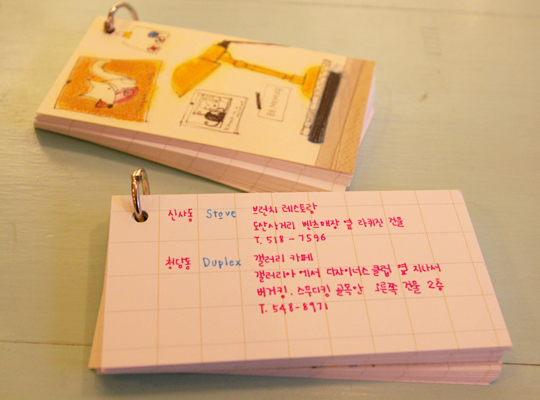 신사동 Stove 브런치 레스토랑
도산사거리 벤츠매장 옆 라퀴진 건물
T. 518-7596
청담동 Duplex 갤러리 카페
갤러리아에서 디자이너스 클럽 옆 지나서
버거킹, 스무디킹 골목안 오른쪽 건물 2층
T. 548-8971